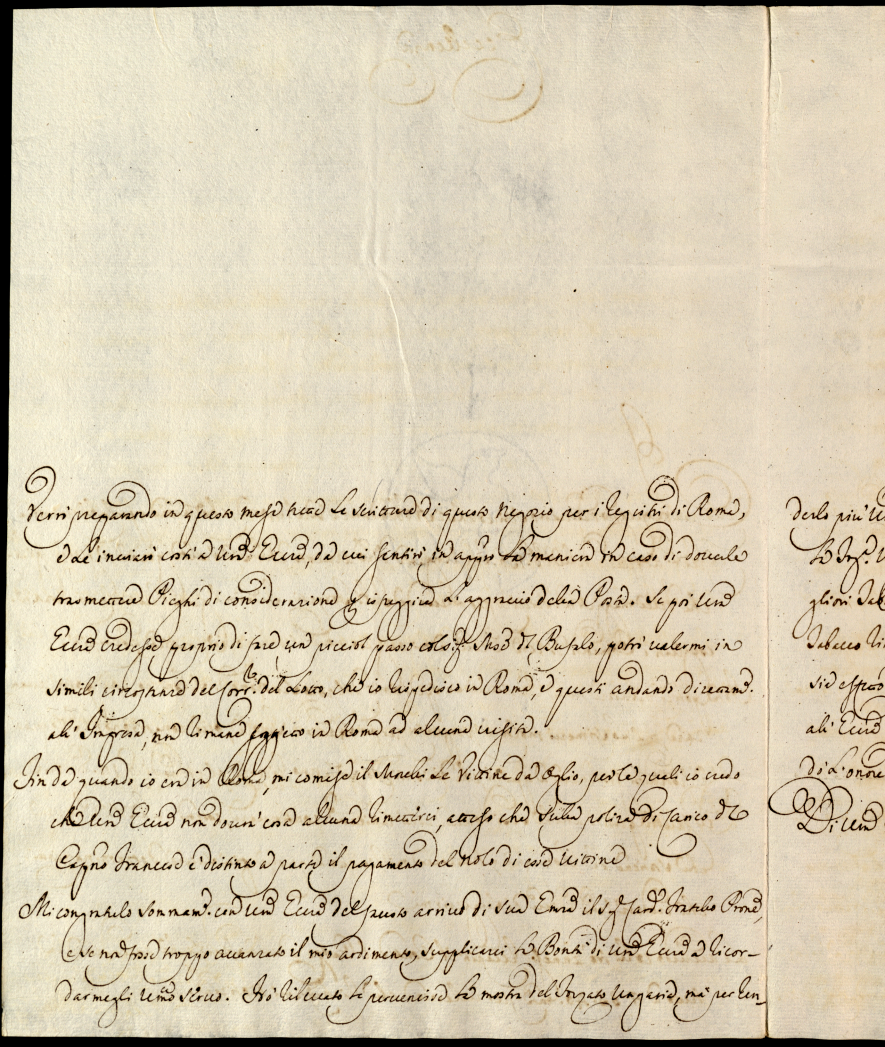 Verrò preparando in questo mese tutte le scritture di questo Negozio per i Registri di Roma,
e le inviarò costì a Vra Ecca, da cui sentirò in appo la maniera in caso di doverle
trasmettere Pieghi di considerazione p isfuggire l'aggravio della Posta. Se poi Vra
Ecca credesse proprio di fare un piccol passo col Sig. March del Bufalo, potrò valermi in
simili circostanze del Corre. del Lotto, che io Spedisco in Roma, e questi andando direttame.
all'Impresa, non rimane soggetto in Roma ad alcuna visita.
Fin da quando io era in Roma, mi comise il Morelli le Vittine da oglio, per le quali io credo
che Vra Ecca non dovrà cosa alcuna rimetterci, atteso che nella poliza di Carico del
Capno Francese è distinto a parte il pagamento del nolo di esse vittine
Mi congratulo sommame. con Vra Ecca del fausto arrivo di Sua Emza il Sig. Card. Fratello Prone,
e se non fosse troppo avanzato il mio ardimento, supplicarei la Bontà di Vra Ecca a ricor-
darmegli umo servo. Fò rilevato le pervenisse la mostra del Forzato Ungaria, ma per ren-
derlo più
gliori
Tabacco
sia effetto
all'Ecca
do l'onore
Di Vra